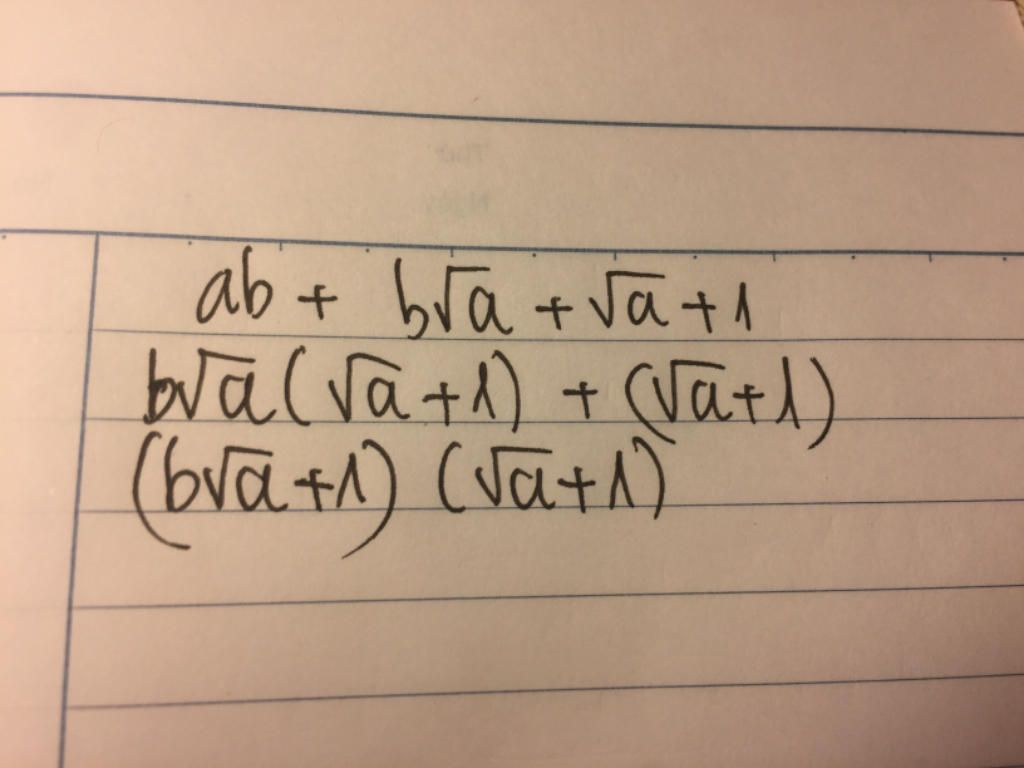 ab + b√a + √a + 1
b√a (√a + 1) + (√a + 1)
(b√a + 1) (√a + 1)